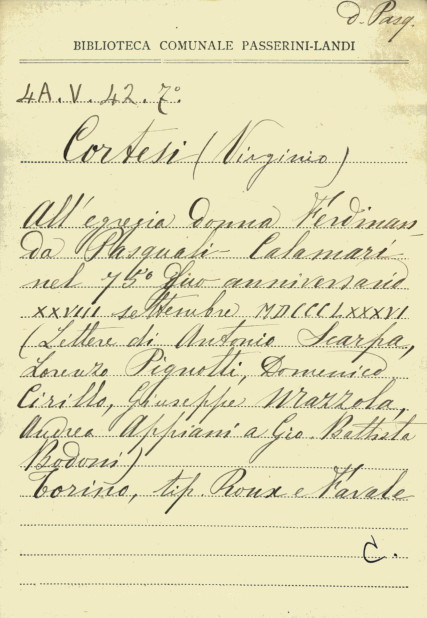 d. Pasq.
BIBLIOTECA COMUNALE PASSERINI-LANDI
4A. V. 42. 7°.
Cortesi (Virginio)
All'egregia donna Ferdinan-
da Pasquali-Calamari-
nel 75° suo anniversario
XXVIII settembre MDCCCLXXXVI
(Lettere di Antonio Scarpa,
Lorenzo Pignotti, Domenico
Cirillo, Giuseppe Mazzola,
Andrea Appiani a Gio. Battista
Bodoni)
Torino, tip. Roux e Favale
C.